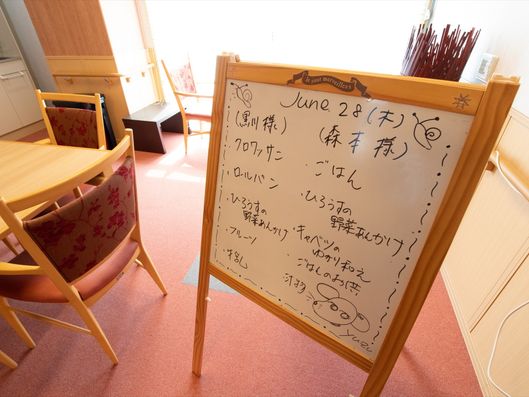 le pour merveilleux
June 28 (木)
(黒川 様)
・クロワッサン
・ロールパン
・ひろうすの
野菜あんかけ
・フルーツ
(森本 様)
・ごはん
・ひろうすの
野菜あんかけ
・キャベツの
ゆかり和え
・ごはんのお供
yuzu